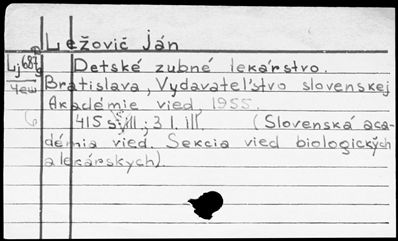 Ležovič Ján
Lj 687
Detské zubné lekárstvo.
Bratislava, Vydavateľstvo slovenskej
Akadémie vied, 1955.
415 s.; 3 l. ill. (Slovenská aca-
démia vied. Sekcia vied biologických
a lekárskych).